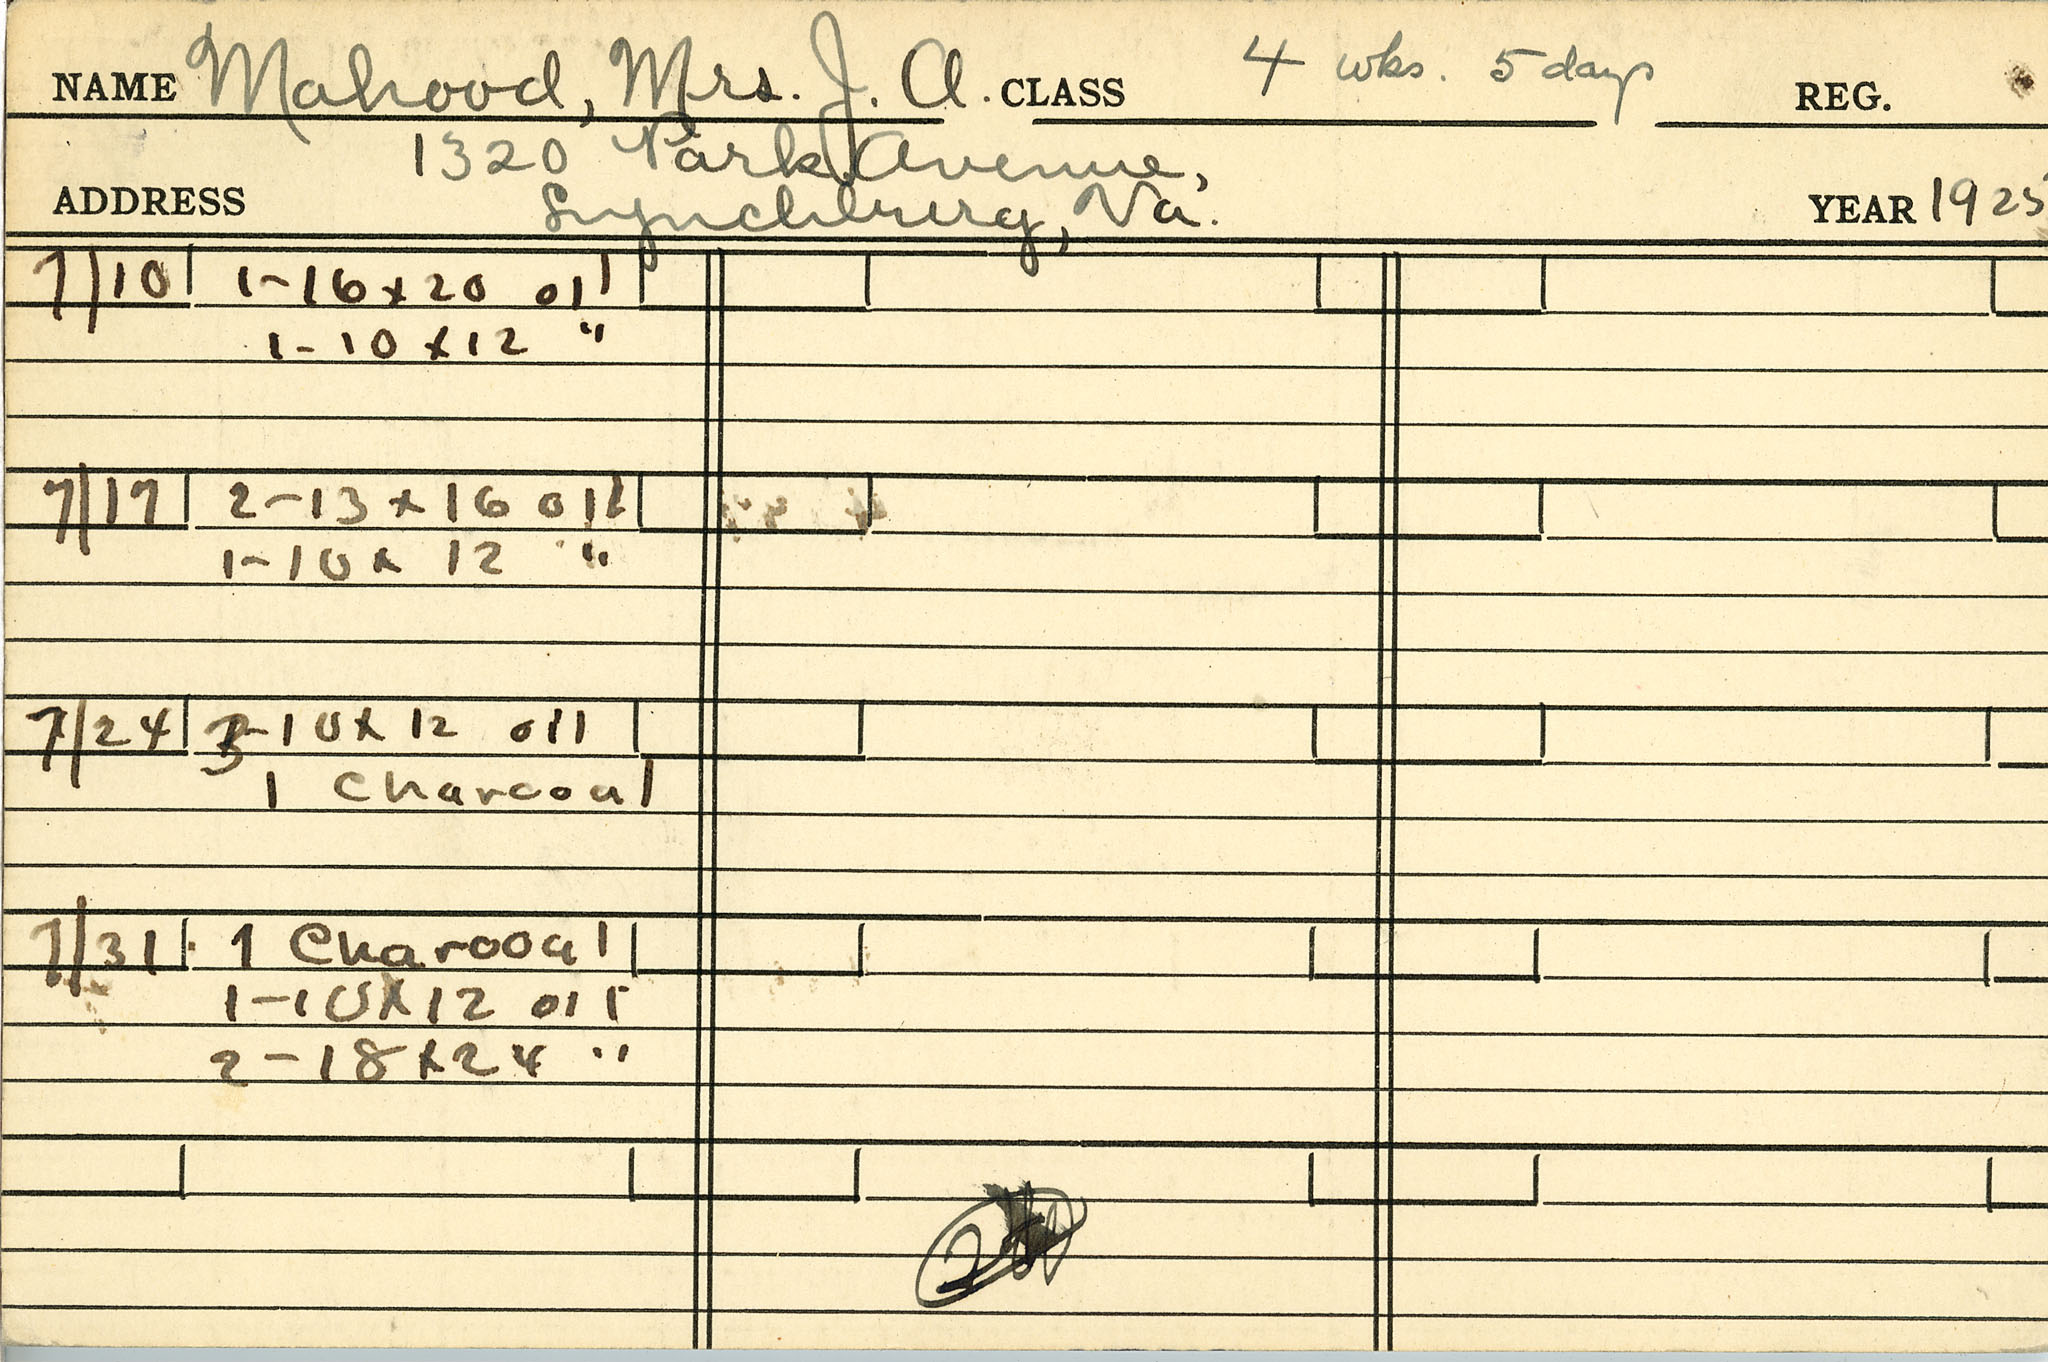 NAME Mahood, Mrs. J. A. CLASS 4 wks. 5 days REG.
1320 Park Avenue,
ADDRESS Lynchburg, Va. YEAR 1925
7/10 1-16x20 oil
1-10x12 "
7/17 2-13x16 oil
1-10x12 "
7/24 3-10x12 oil
1 Charcoal
7/31 1 Charcoal
1-10x12 oil
2-18x24 "